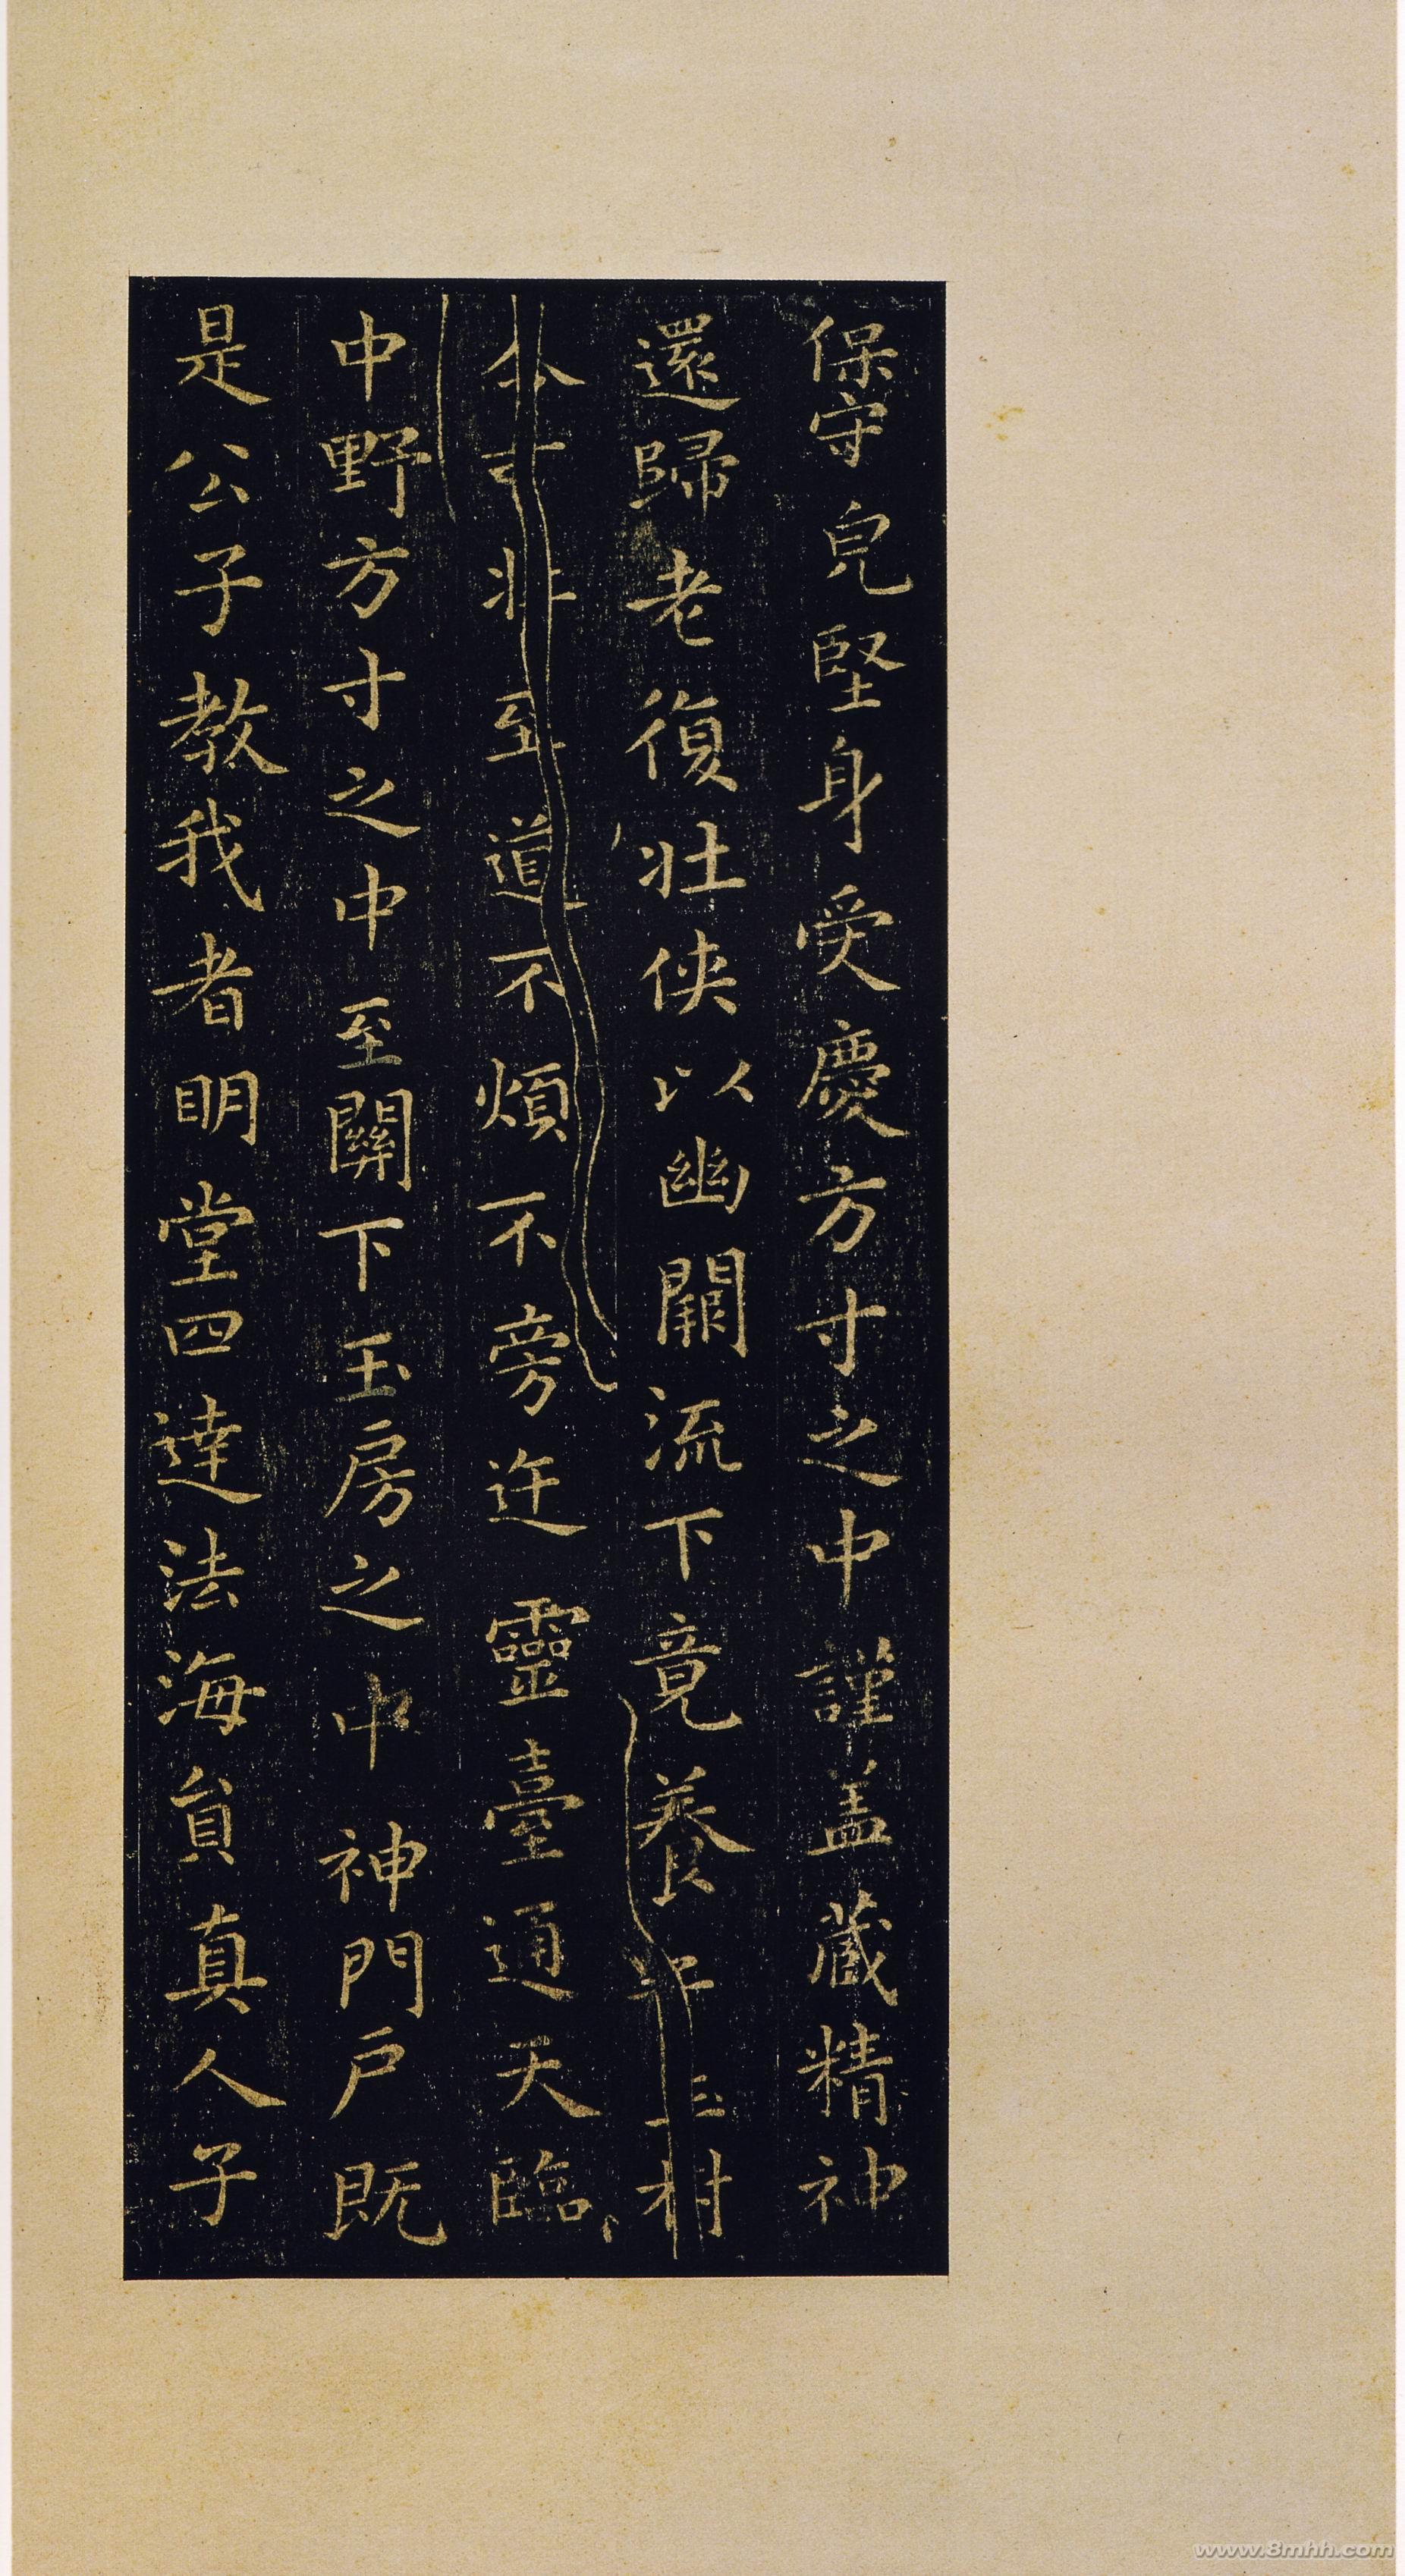 保守皃堅身受慶方寸之中謹盖藏精神
還歸老復壯侠以幽闕流下竟養
可至道不煩不旁迕靈臺通天臨
中野方寸之中至關下玉房之中神門戶既
是公子教我者眀堂四達法海員真人子
www.8mhh.com